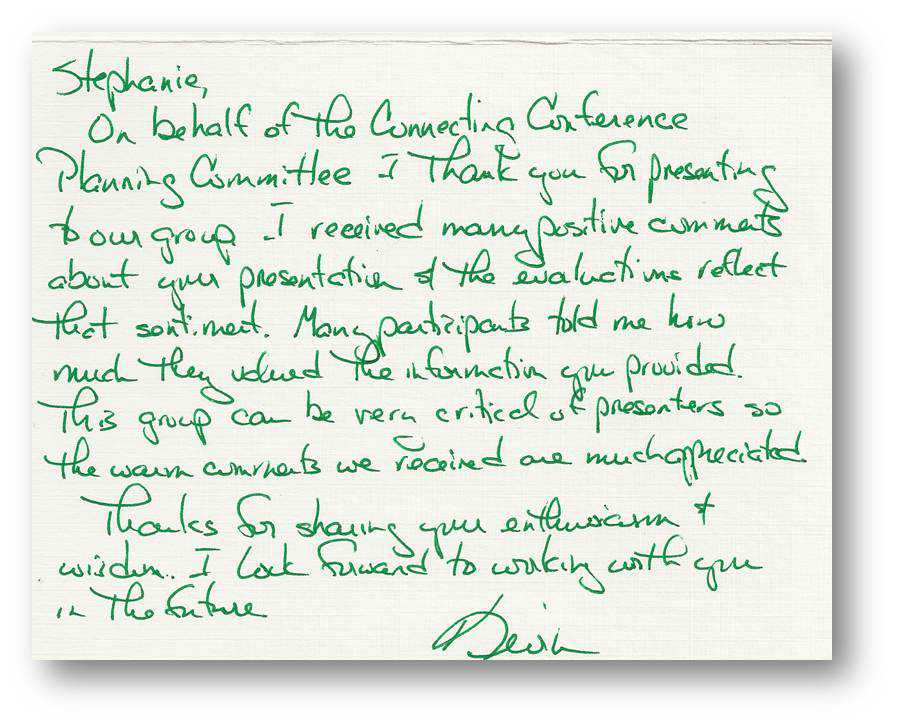 Stephanie,
On behalf of the Connecting Conference
Planning Committee I Thank you for presenting
to our group. I received many positive comments
about your presentation & the evaluations reflect
that sentiment. Many participants told me how
much they valued the information you provided.
This group can be very critical of presenters so
the warm comments we received are much appreciated.
Thanks for sharing your enthusiasm &
wisdom. I look forward to working with you
in the future